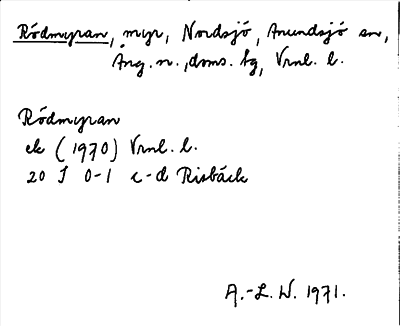 Rödmyran, myr, Nordsjö, Anundsjö sn,
Ång. n., doms. hg, Vrnl. l.
Rödmyran
ek (1970) Vrnl. l.
20 I 0-1 c-d Risbäck
A.-L. W. 1971.